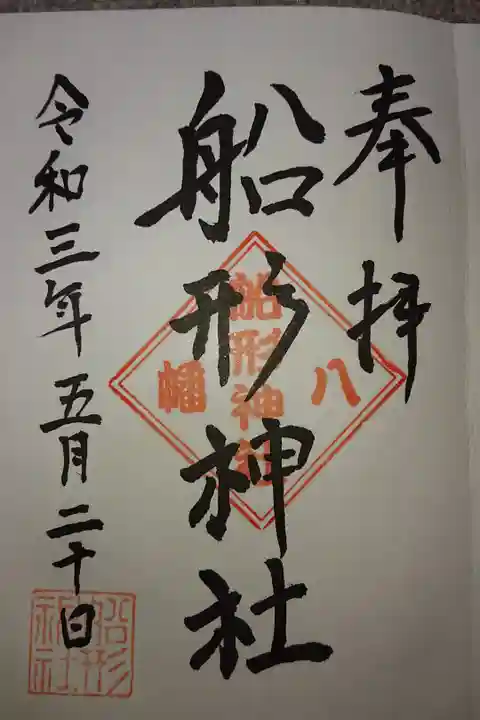 奉拝
船形神社
令和三年五月二十日
八幡
船形神社
船形
神社